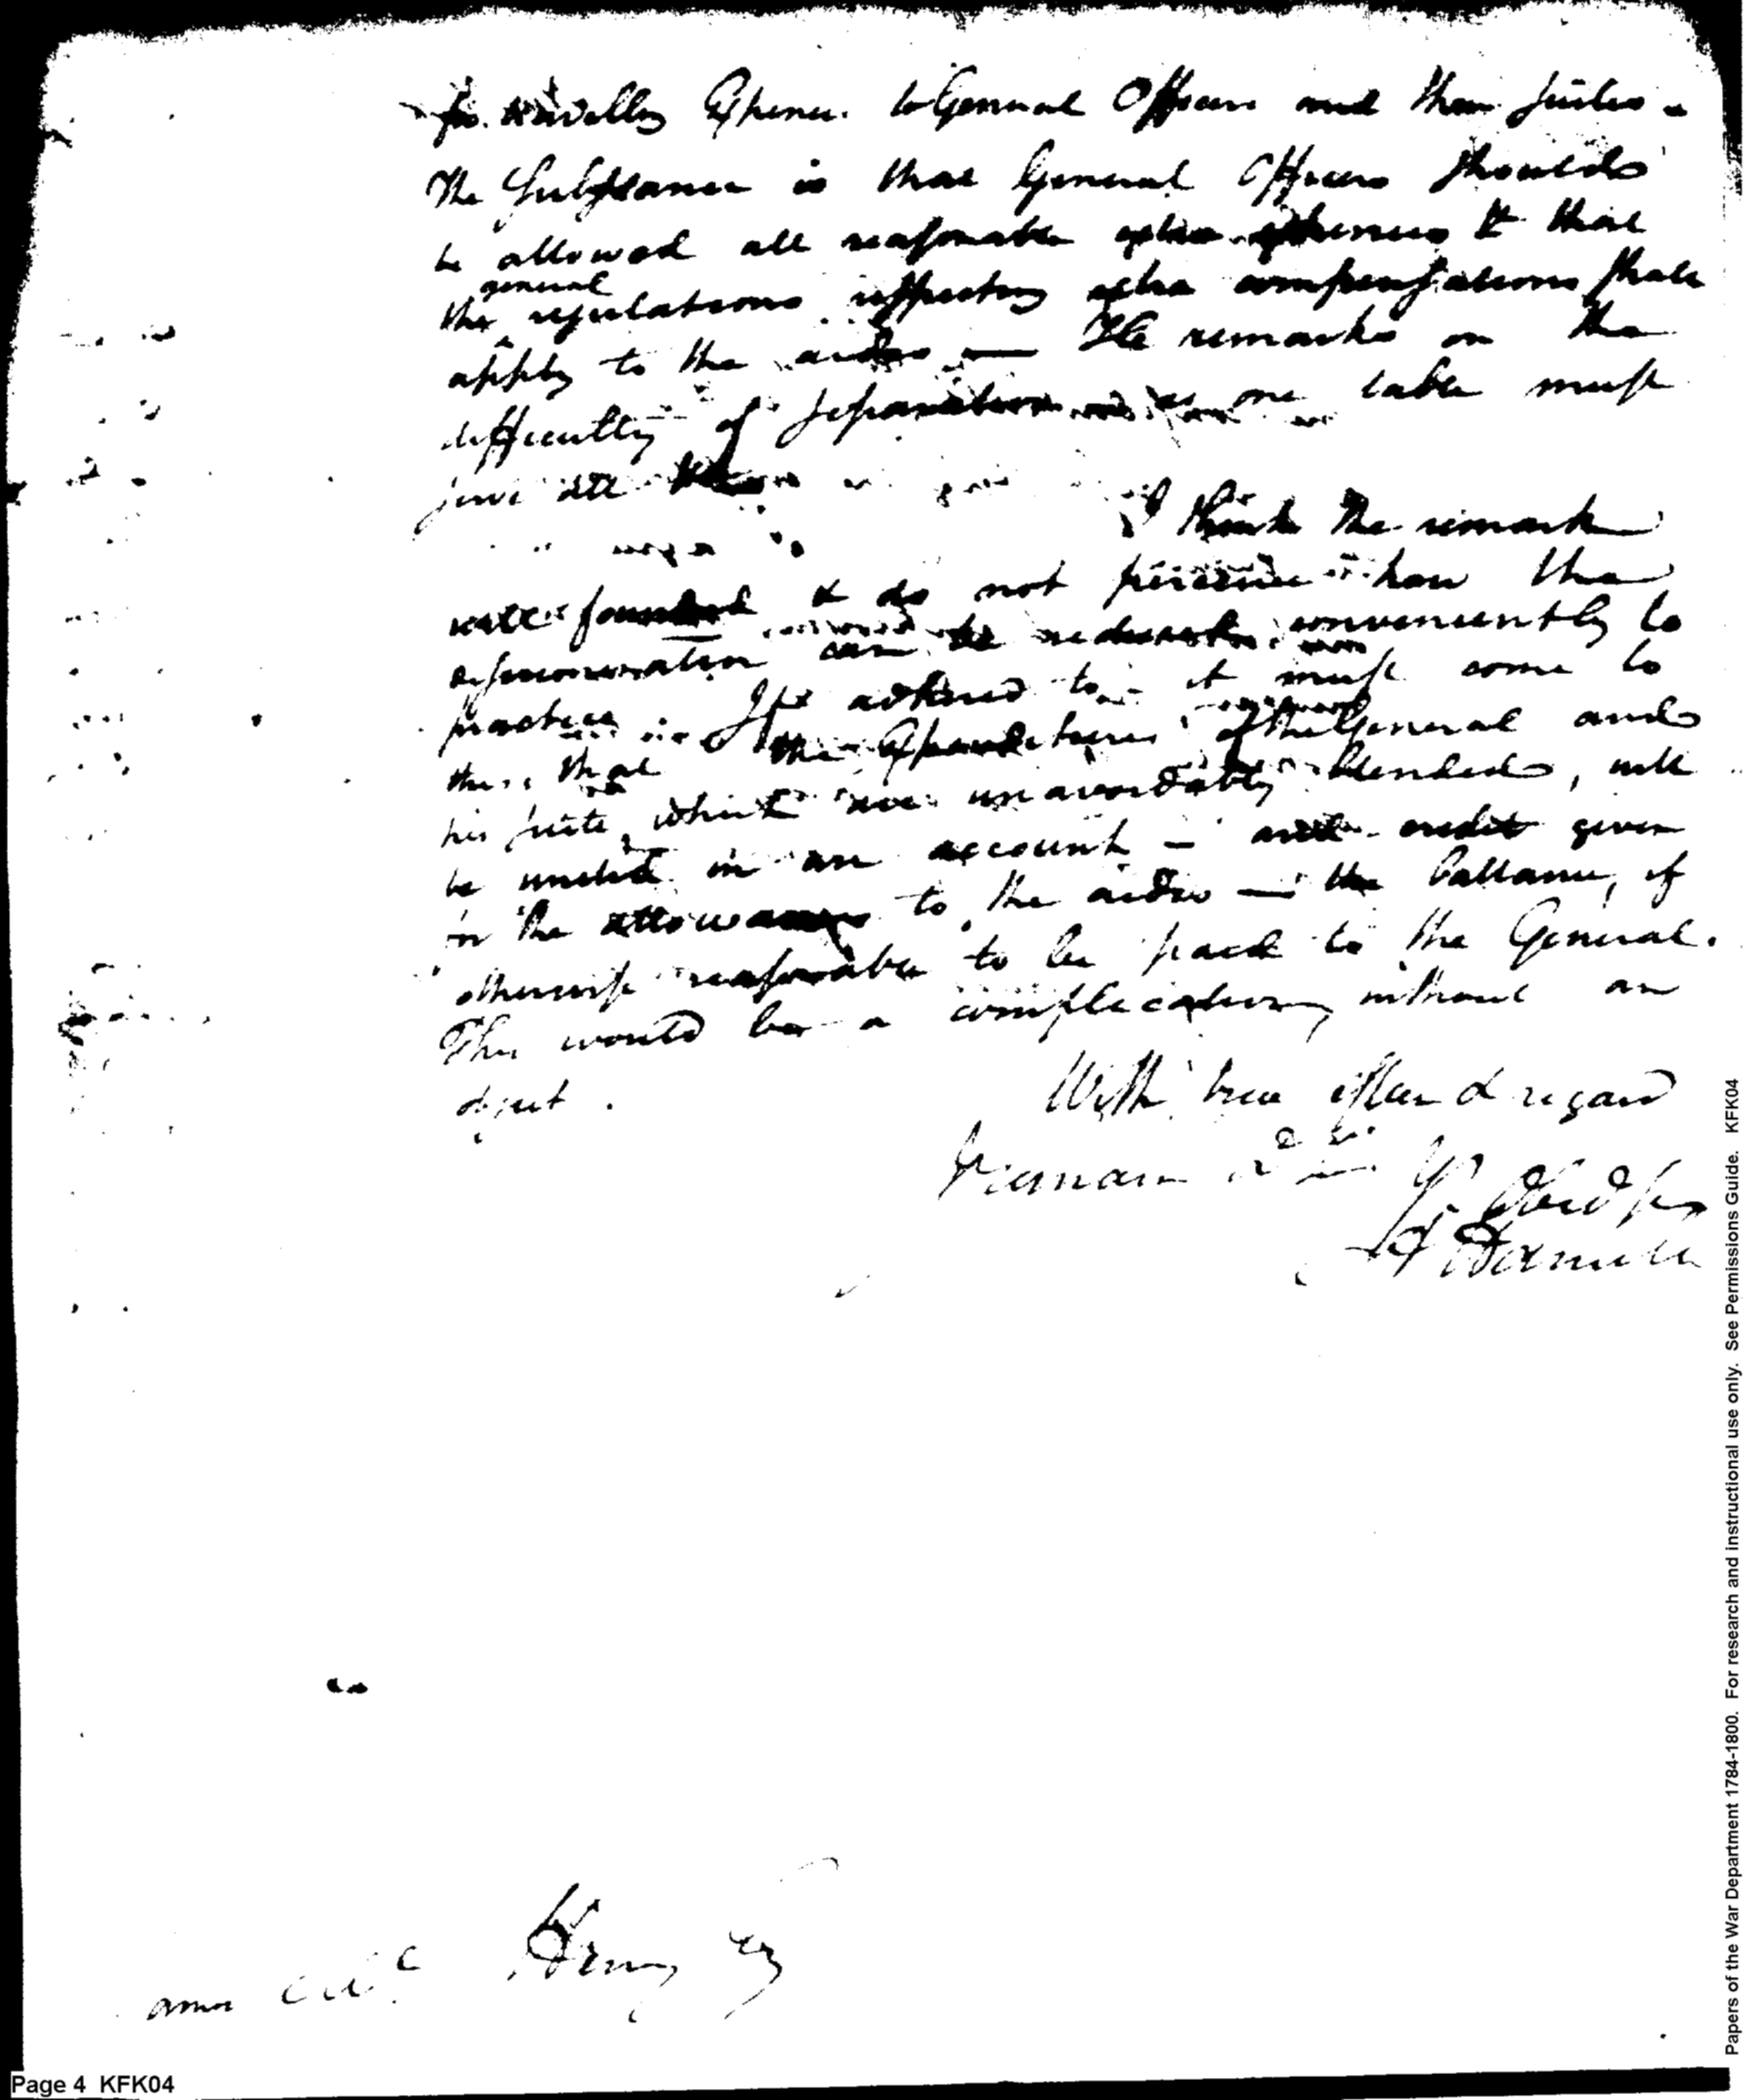 for travelling Expences to General Officers and their suites -
The Substance is that General Officers should
be allowed all reasonable extra expences & that
general
the regulations respecting extra compensations shall
apply to the aides — He remarks on the
difficulty of separation as one table must
serve all
I think the remark
well founded & do not perceive how the
discrimination can be reduced conveniently to
practice. If adhered to it must come to
this, that the Expenditures of the General and
his suite, which are unavoidably blended, will
be united in an account — and credit given
for the allowances to the aides — the ballance, if
otherwise reasonable to be paid to the General.
This would be a complication, without an
object.
With true esteem & regard
I remain Dr Sir
Yr Obed ser
A Hamilton
James McHenry Esq
Page 4 KFK04
Papers of the War Department 1784-1800. For research and instructional use only. See Permissions Guide. KFK04